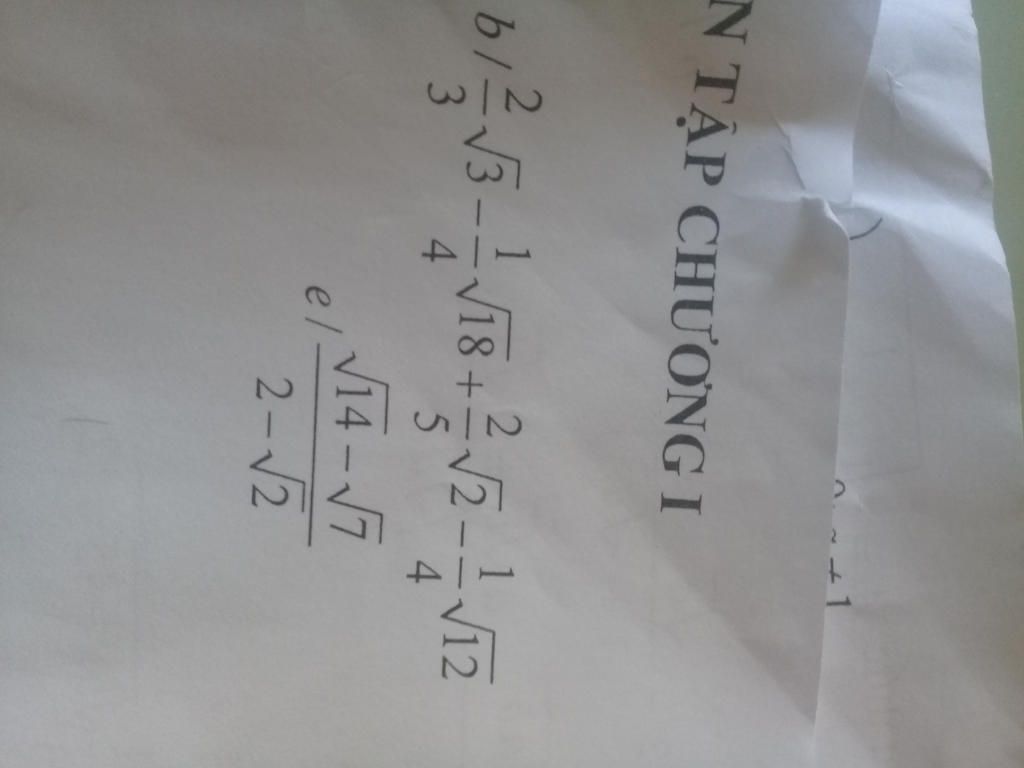 N TẬP CHƯƠNG I
b/ \frac{2}{3}\sqrt{3} - \frac{1}{4}\sqrt{18} + \frac{2}{5}\sqrt{2} - \frac{1}{4}\sqrt{12}
e/ \frac{\sqrt{14} - \sqrt{7}}{2 - \sqrt{2}}